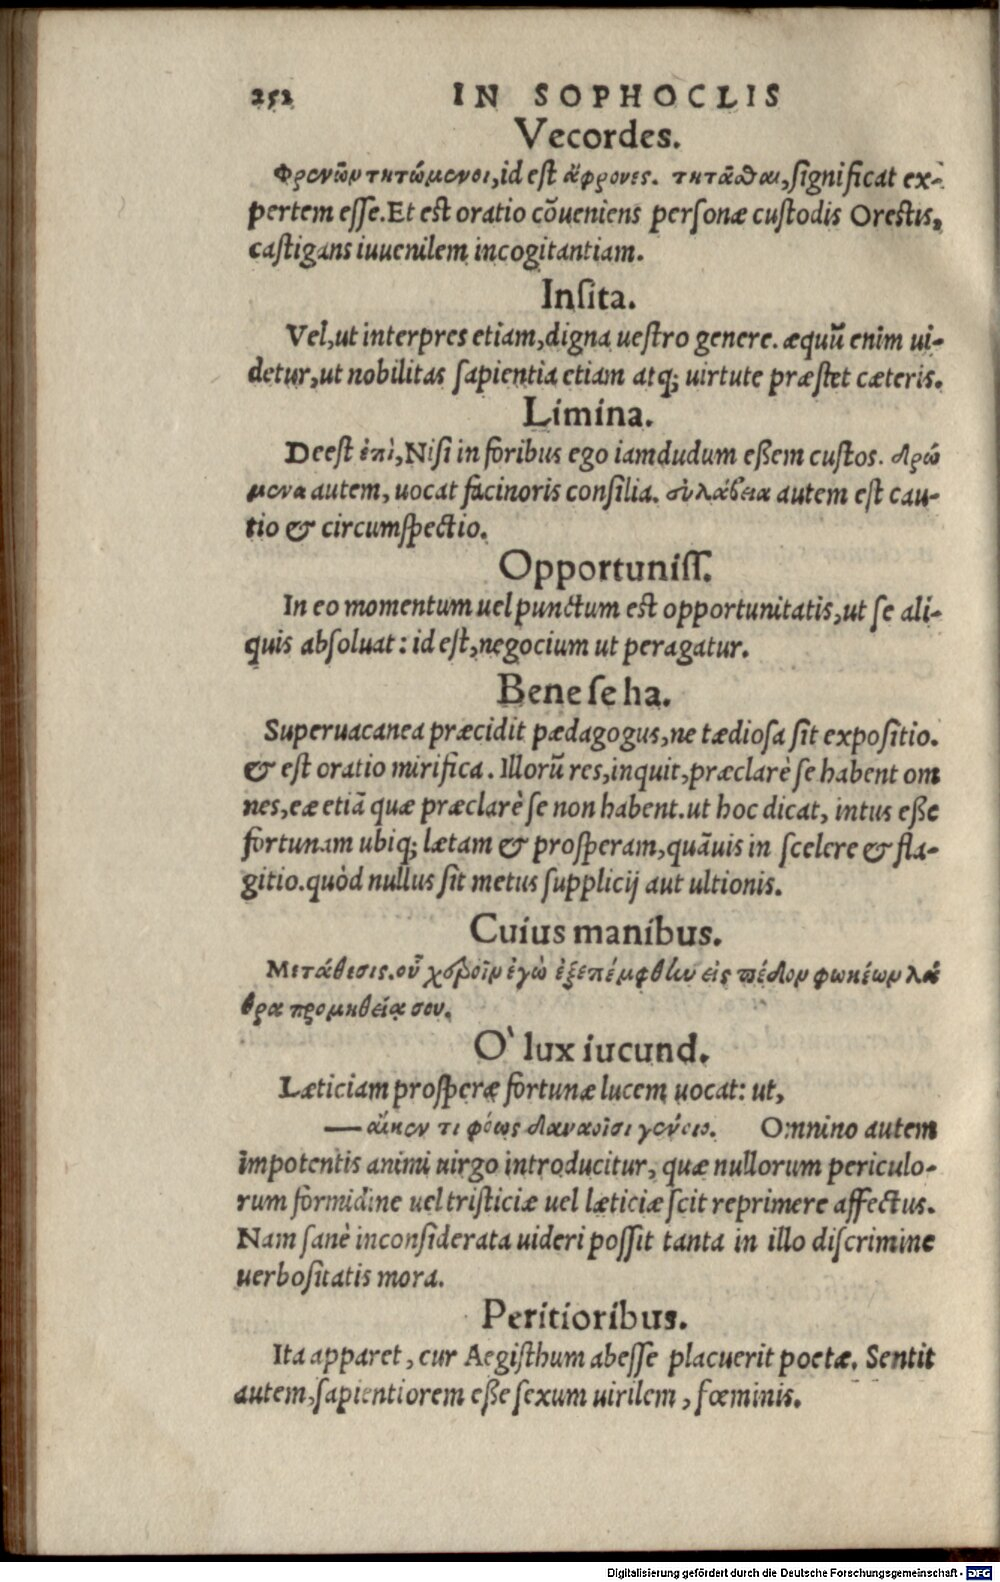 252 IN SOPHOCLIS
Vecordes.
Φρενῶν τητώμενοι, id est ἄφρονες. τητᾶσθαι, significat ex-
pertem esse. Et est oratio cõueniens personæ custodis Orestis,
castigans iuuenilem incogitantiam.
Insita.
Vel, ut interpres etiam, digna uestro genere. æquũ enim ui-
detur, ut nobilitas sapientia etiam atq; uirtute præstet cæteris.
Limina.
Deest ἐπὶ, Nisi in foribus ego iamdudum eßem custos. δρώ
μενα autem, uocat facinoris consilia. εὐλάβεια autem est cau-
tio & circumspectio.
Opportuniss.
In eo momentum uel punctum est opportunitatis, ut se ali-
quis absoluat: id est, negocium ut peragatur.
Bene se ha.
Superuacanea præcidit pædagogus, ne tædiosa sit expositio.
& est oratio mirifica. Illorũ res, inquit, præclarè se habent om
nes, eæ etiã quæ præclarè se non habent. ut hoc dicat, intus eße
fortunam ubiq; lætam & prosperam, quãuis in scelere & fla-
gitio. quòd nullus sit metus supplicij aut ultionis.
Cuius manibus.
Μετάθεσις. οὗ χεροῖν ἐγὼ ἐξεπέμφθην εἰς πέδον φωκέων λά
θρα προμηθείᾳ σου.
O` lux iucund.
Læticiam prosperæ fortunæ lucem uocat: ut,
— αἴκεν τι φόως δαναοῖσι γένειο. Omnino autem
impotentis animi uirgo introducitur, quæ nullorum periculo-
rum formidine uel tristiciæ uel læticiæ scit reprimere affectus.
Nam sanè inconsiderata uideri possit tanta in illo discrimine
uerbositatis mora.
Peritioribus.
Ita apparet, cur Aegisthum abesse placuerit poetæ. Sentit
autem, sapientiorem eße sexum uirilem, fœminis.
Digitalisierung gefördert durch die Deutsche Forschungsgemeinschaft - DFG